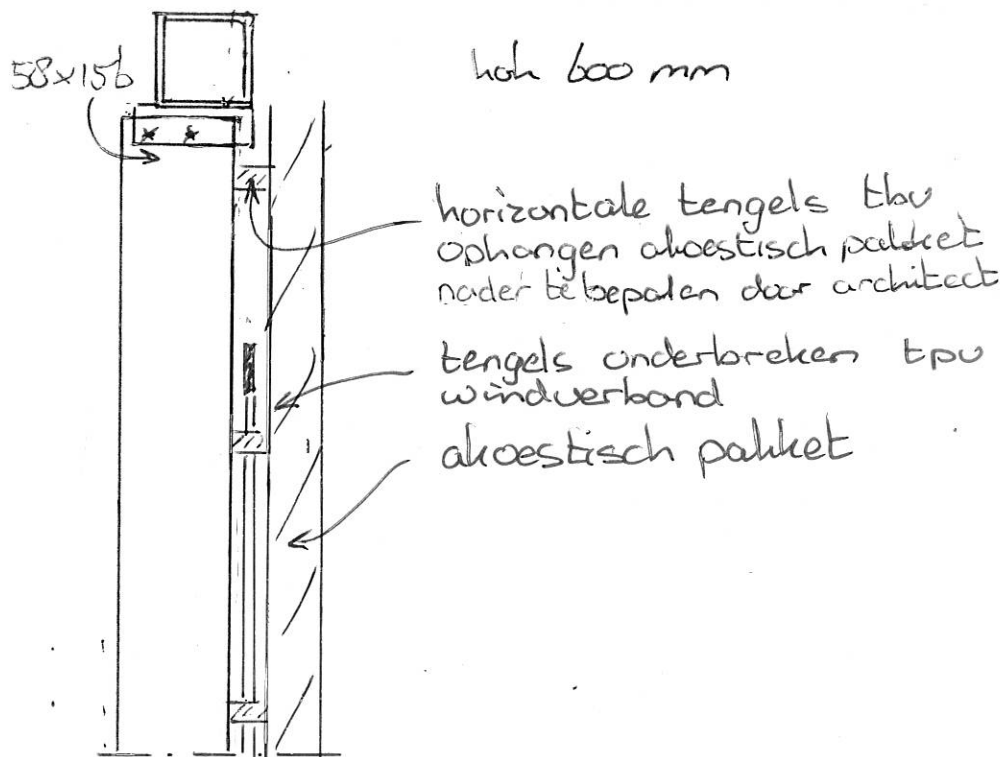 58x156
hoh 600 mm
horizontale tengels tbv
ophangen akoestisch pakket
nader te bepalen door architect
tengels onderbreken tpv
windverband
akoestisch pakket